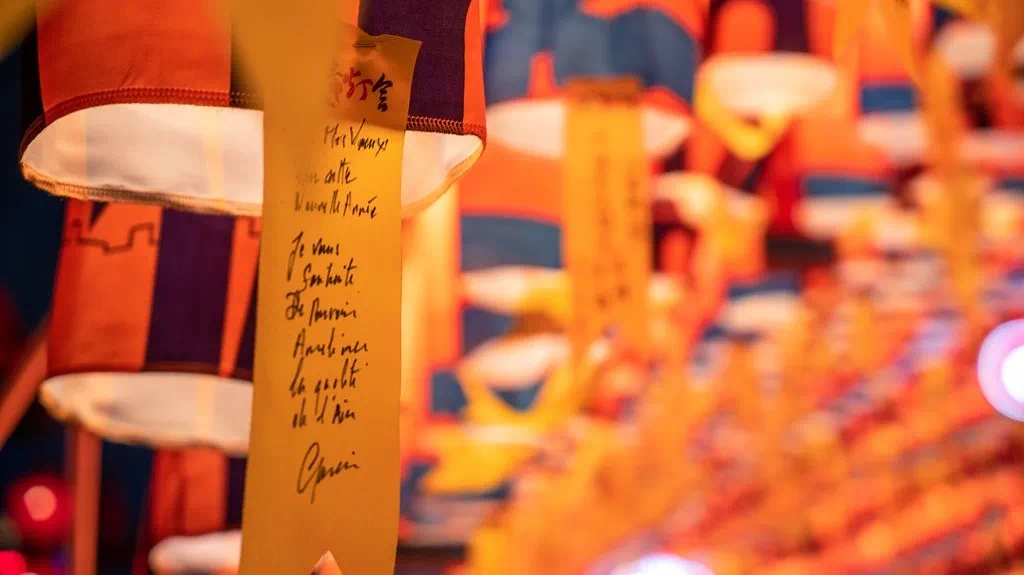 灯会
Mes Voeux
cette
Nouvelle Année
Je vous
Souhaite
De Pouvoir
Améliorer
la qualité
de l'Air